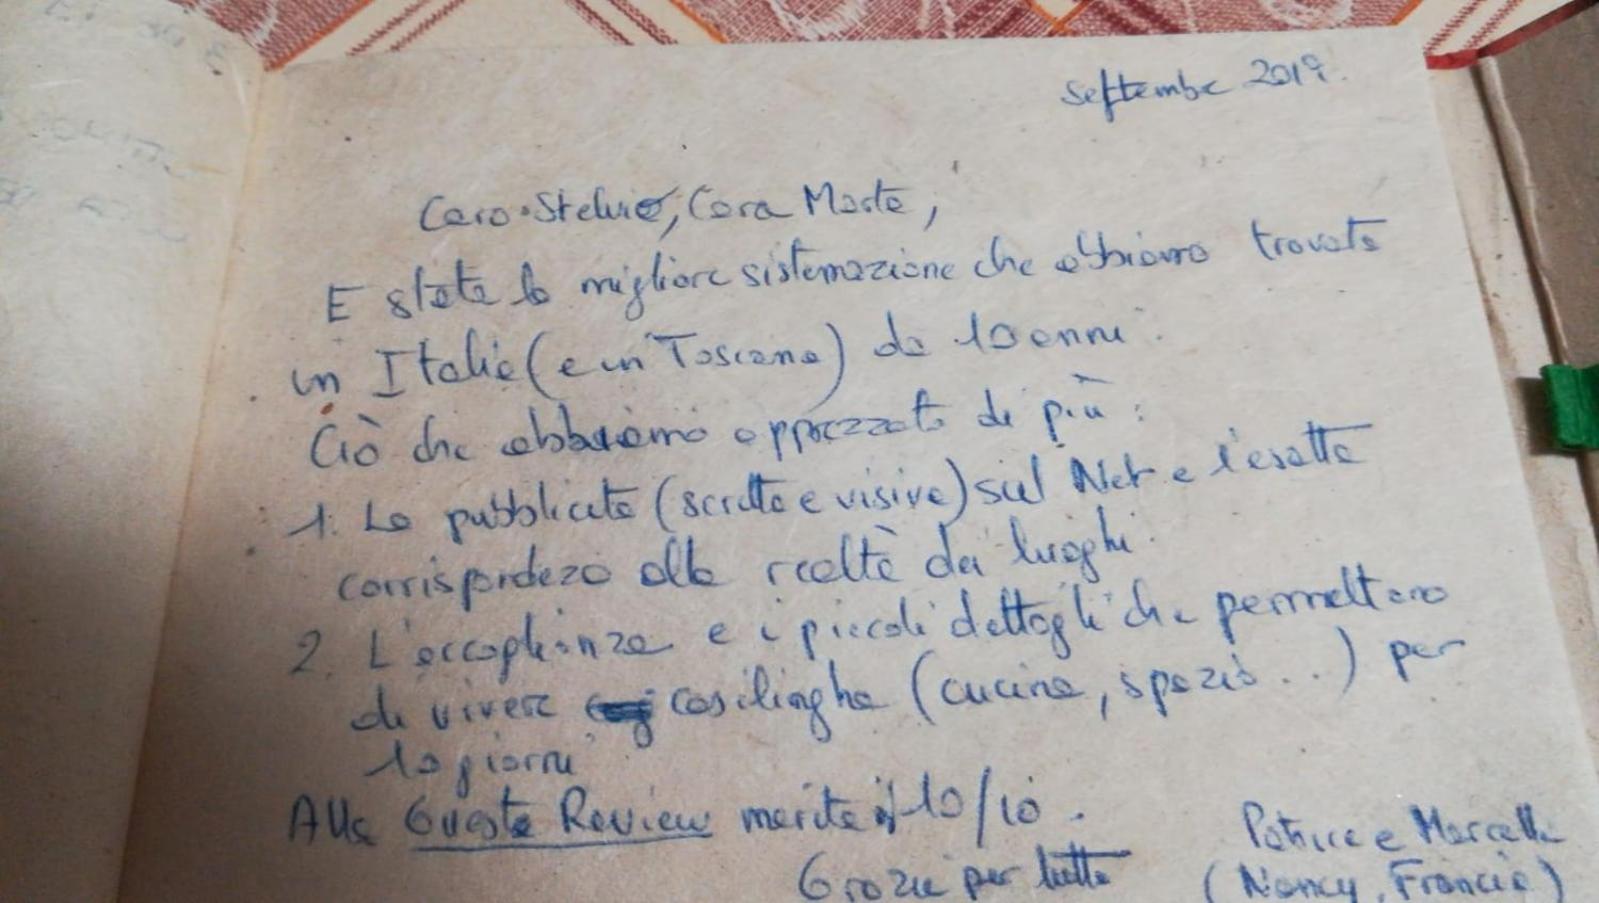 Septembre 2019.
Caro Stelvio, Cara Marta,
E stata la migliore sistemazione che abbiamo trovato
in Italia (e in Toscana) da 10 anni.
Ciò che abbiamo apprezzato di più :
1. La pubblicità (scritta e visiva) sul Net e l'esatta
corrispondeza alla realtà dei luoghi.
2. L'accoglienza e i piccoli dettagli che permettono
di vivere casilinghe (cucina, spazio...) per
10 giorni
Alla Guests Review merita il 10/10.
Grazie per tutto
Patrice e Marcelle
(Nancy, Francia)